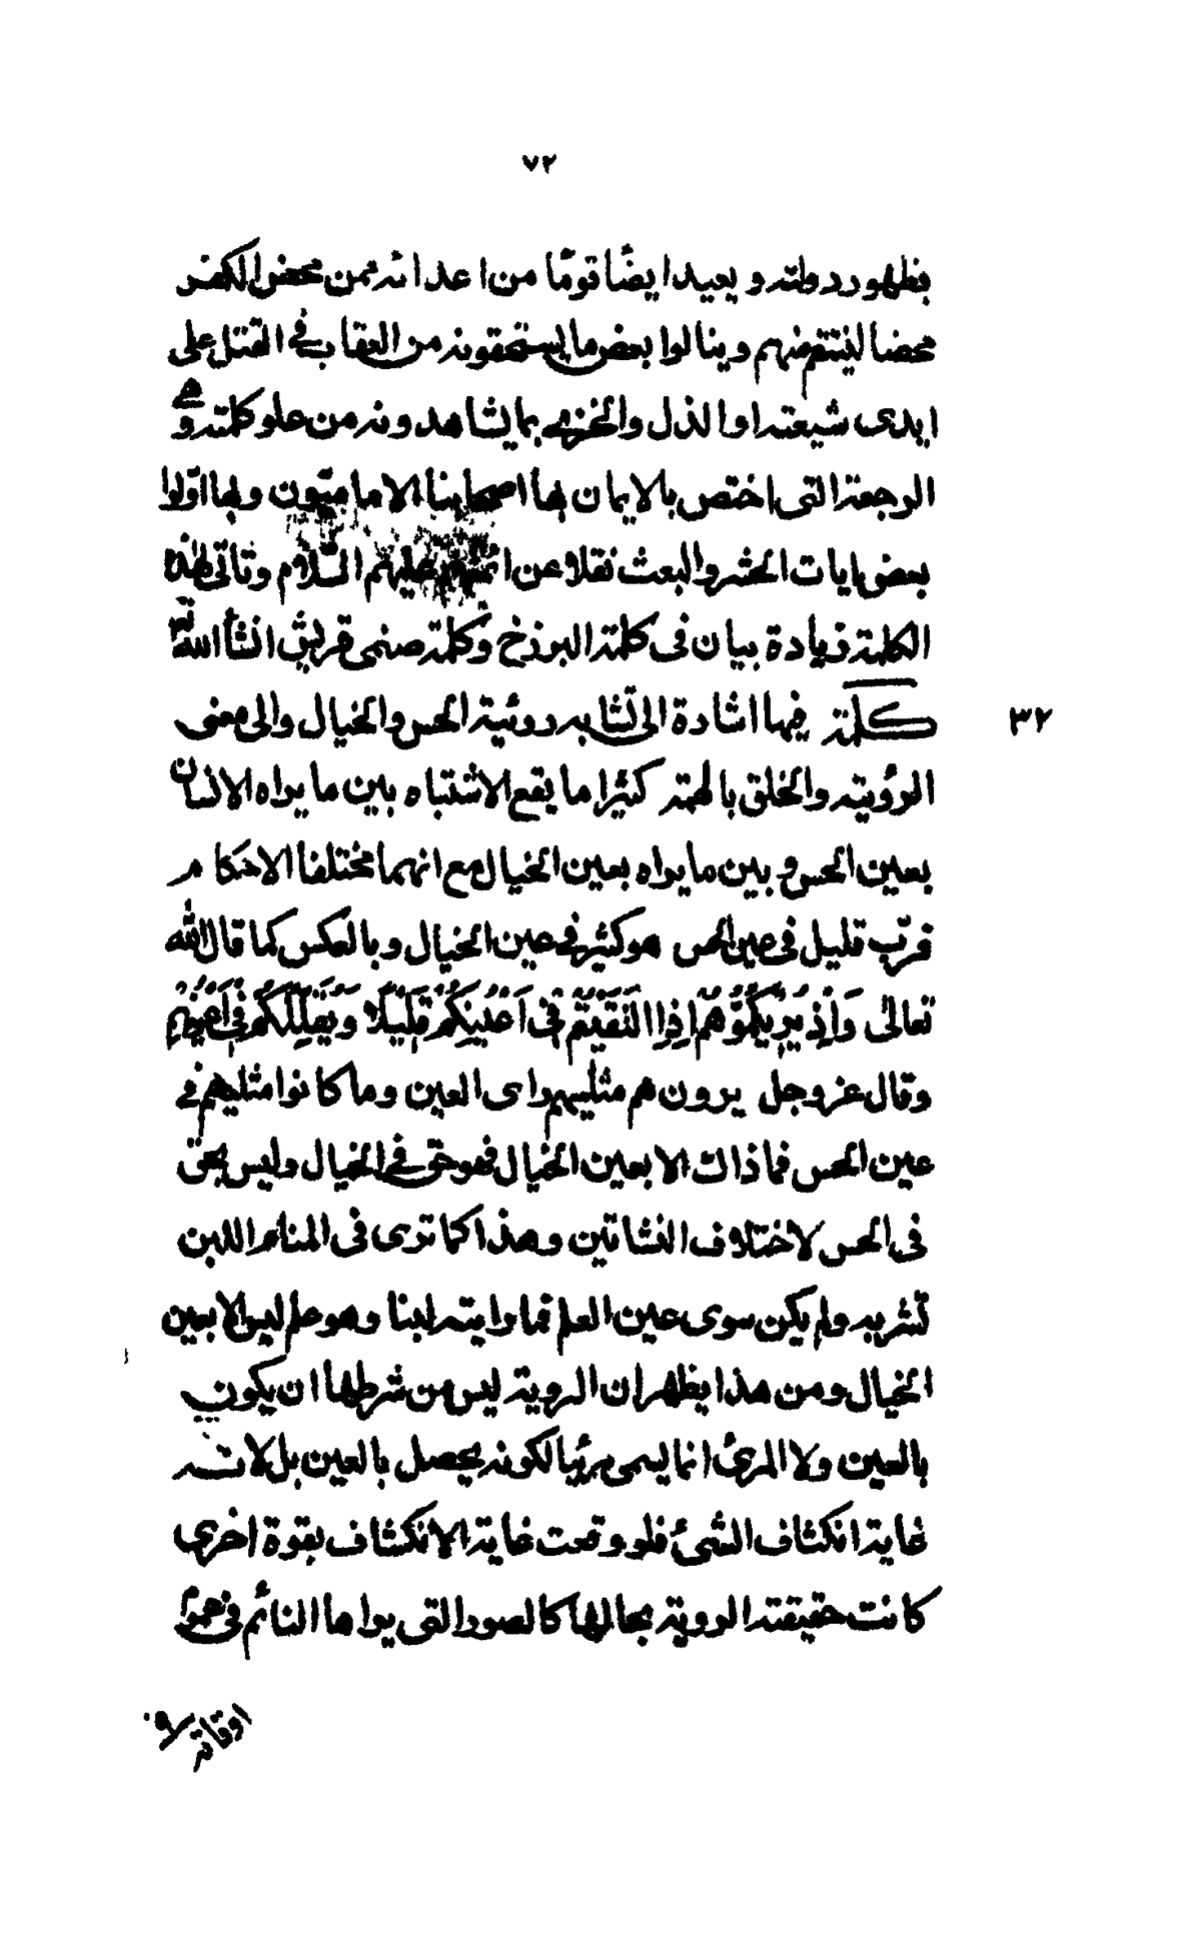 ٧٢
بظهور دولته و يعيد ايضًا قومًا من اعدائه ممن محض الكفر
محضا لينتقم منهم و ينالوا بعض ما يستحقونه من العقاب فى القتل على
ايدى شيعته او الذل والخزى بما يشاهدونه من علو كلمته و هى
الرجعة التى اختص بالايمان بها اصحابنا الاماميّون و بها اوّلوا
بعض ايات الحشر والبعث نقلا عن ائمتهم عليهم السّلام و تأتى لهذه
الكلمة زيادة بيان فى كلمة البرزخ و كلمة صنمى قريش انشأ الله تع
كلمة فيها اشارة الى تشابه روئية الحس والخيال والى معنى
٣٢
الرؤية والخلق بالهمة كثيرا ما يقع الاشتباه بين ما يراه الانسان
بعين الحس و بين ما يراه بعين الخيال مع انهما مختلفا الاحكام
فربّ قليل فى عين الحس هو كثير فى عين الخيال و بالعكس كما قال الله
تعالى وَاِذْ يُرِيكُمُوُهُمْ اِذِ الْتَقَيْتُمْ فِى اَعْيُنِكُمْ قَلِيْلًا وَيُقَلِّلُكُمْ فِى اَعْيُنِهِمْ
وقال عزوجل يرونهم مثليهم راى العين وما كانوا مثليهم فى
عين الحس فما ذاك الا بعين الخيال فهو حق فى الخيال وليس بحق
فى الحس لاختلاف النشاتين وهذا كما ترى فى المنام اللبن
تشربه ولم يكن سوى عين العلم فما رايته لبنا وهو علم ليس الا بعين
الخيال و من هذا يظهر ان الروية ليس من شرطها ان يكون
بالعين ولا المرئ انما يسمى مرئيا لكونه يحصل بالعين بل لانه
غاية انكشاف الشئ فلو وقعت غاية الانكشاف بقوة اخرى
كانت حقيقته الروية بحالها كالصور التى يراها النائم فى عموم
اوقاته